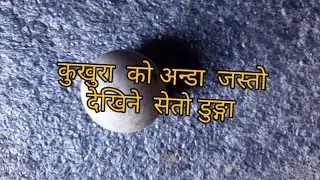 कुखुरा को अन्डा जस्तो
देखिने सेतो डुङ्गा